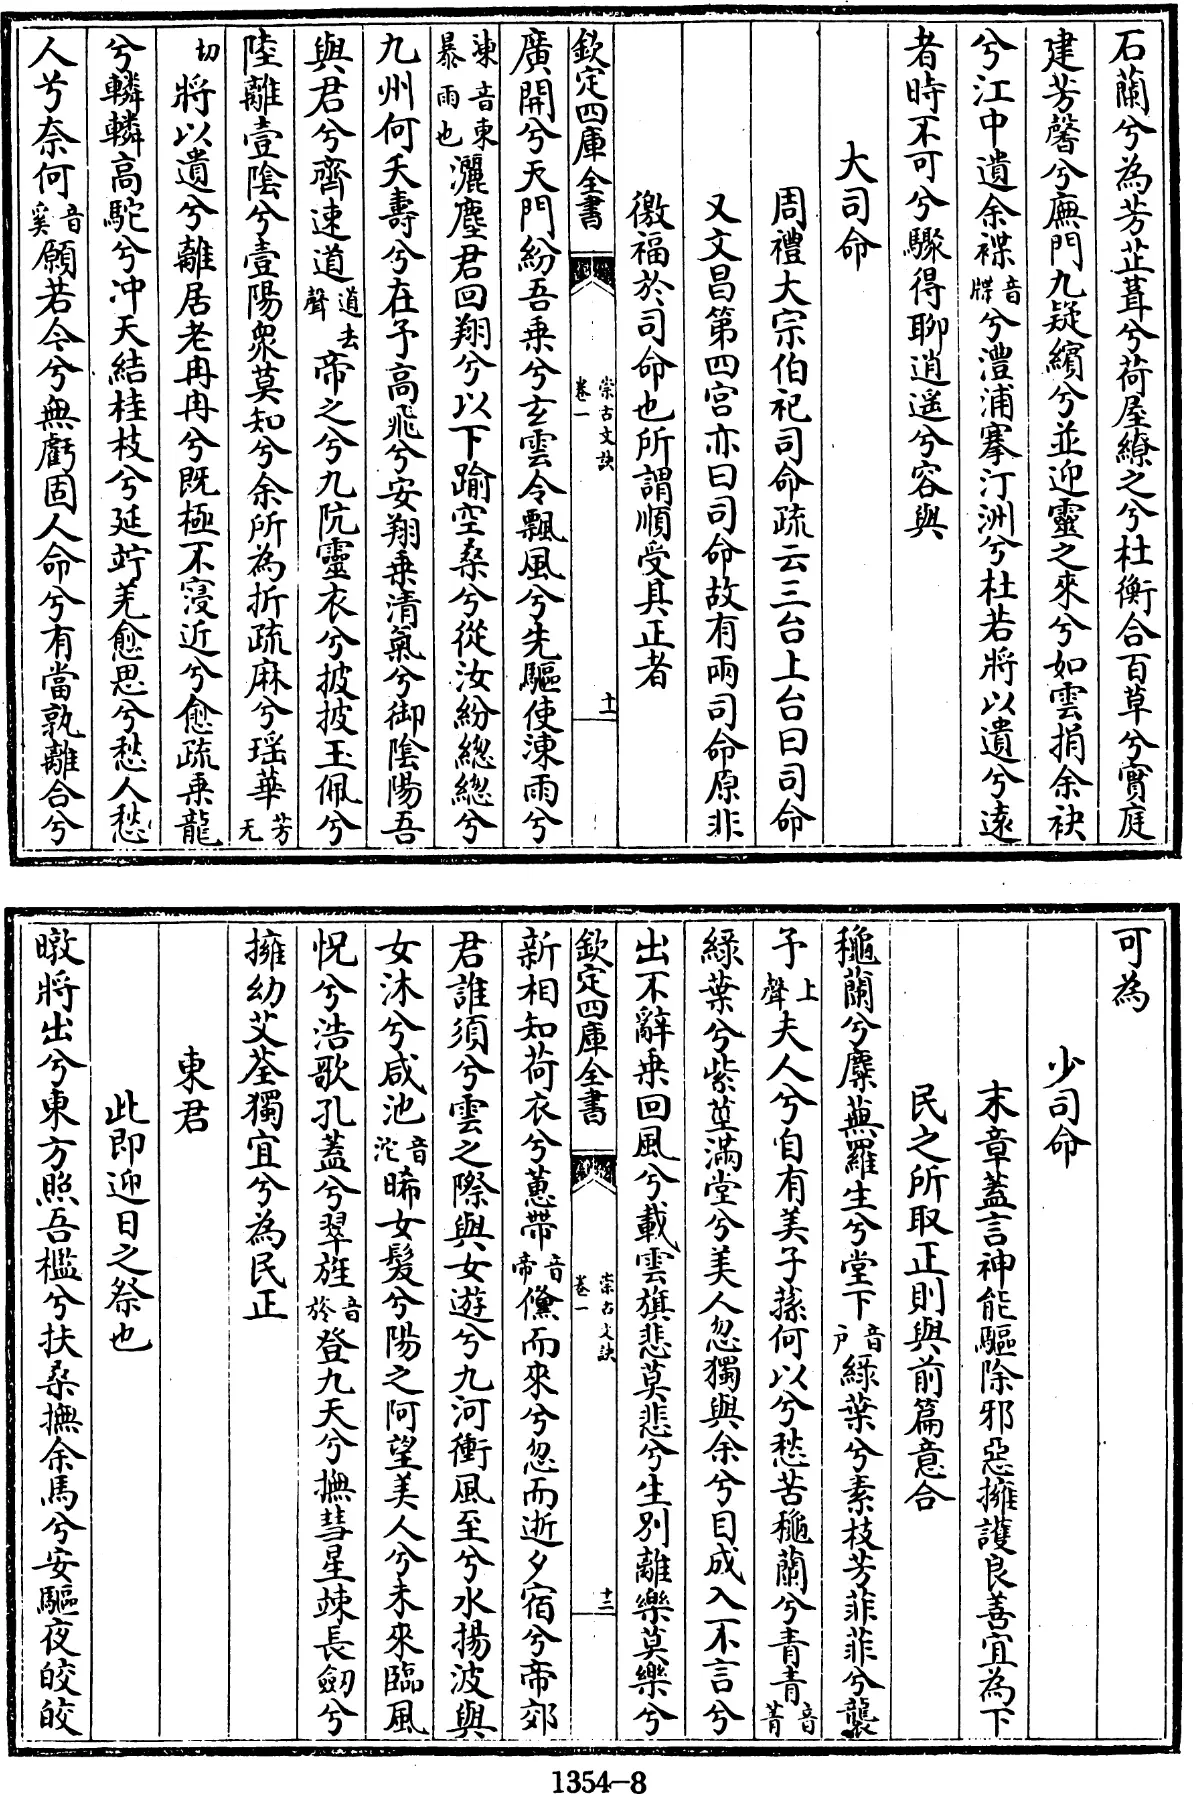 石蘭兮為芳芷葺兮荷屋繚之兮杜衡合百草兮實庭
建芳馨兮廡門九疑繽兮並迎靈之來兮如雲捐余袂
兮江中遺余褋音牒兮澧浦搴汀洲兮杜若將以遺兮逺
者時不可兮驟得聊逍遥兮容與
大司命
周禮大宗伯祀司命疏云三台上台曰司命
又文昌第四宫亦曰司命故有兩司命原非
徼福於司命也所謂順受其正者
欽定四庫全書
崇古文訣
卷一
十一
廣開兮天門紛吾乗兮玄雲令飄風兮先驅使涷雨兮
涷音東暴雨也灑塵君回翔兮以下踰空桑兮從汝紛總總兮
九州何夭壽兮在予高飛兮安翔乗清氣兮御陰陽吾
與君兮齊速道道去聲帝之兮九阬靈衣兮披披玉佩兮
陸離壹陰兮壹陽衆莫知兮余所為折疏麻兮瑶華芳无
切將以遺兮離居老冉冉兮既極不寖近兮愈疏乗龍
兮轔轔高駝兮冲天結桂枝兮延竚羌愈思兮愁人愁
人兮奈何音奚願若今兮無虧固人命兮有當孰離合兮
可為
少司命
末章蓋言神能驅除邪惡擁護良善宜為下
民之所取正則與前篇意合
穐蘭兮麋蕪羅生兮堂下音户緑葉兮素枝芳菲菲兮襲
予上聲夫人兮自有美子蓀何以兮愁苦穐蘭兮青青音菁
緑葉兮紫莖滿堂兮美人忽獨與余兮目成入不言兮
出不辭乗回風兮載雲旗悲莫悲兮生别離樂莫樂兮
欽定四庫全書
崇古文訣
卷一
十二
新相知荷衣兮蕙帶音帝儵而來兮忽而逝夕宿兮帝郊
君誰須兮雲之際與女遊兮九河衝風至兮水揚波與
女沐兮咸池音沱晞女髪兮陽之阿望美人兮未來臨風
怳兮浩歌孔蓋兮翠旌音於登九天兮撫彗星竦長劒兮
擁幼艾荃獨宜兮為民正
東君
此即迎日之祭也
暾將出兮東方照吾檻兮扶桑撫余馬兮安驅夜皎皎
1354-8